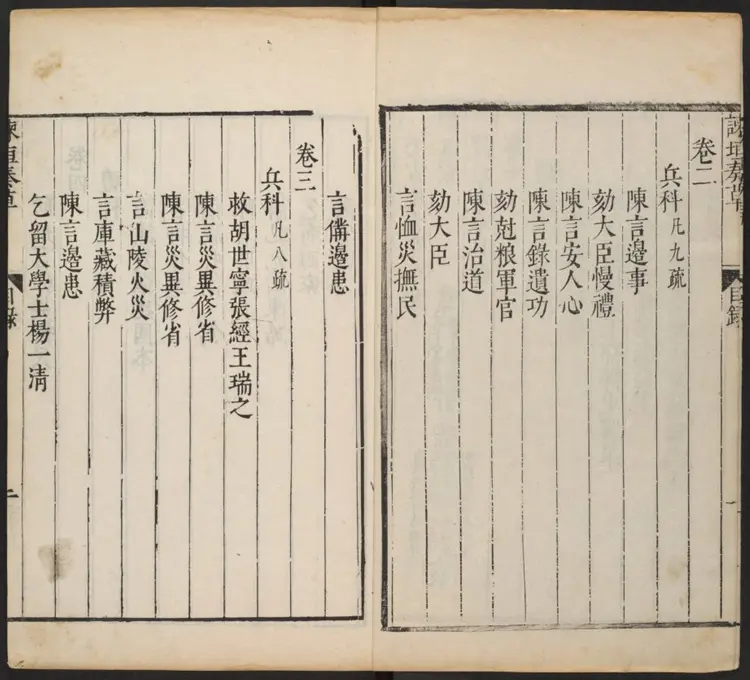 諫垣奏草
目錄
一
卷二
兵科凡九疏
陳言邊事
劾大臣慢禮
陳言安人心
陳言錄遺功
劾尅粮軍官
陳言治道
劾大臣
言恤災撫民
言備邊患
卷三
兵科凡八疏
救胡世寧張經王瑞之
陳言災異修省
陳言災異修省
言山陵火災
言庫藏積弊
陳言邊患
乞留大學士楊一清
諫垣奏草
目錄
二